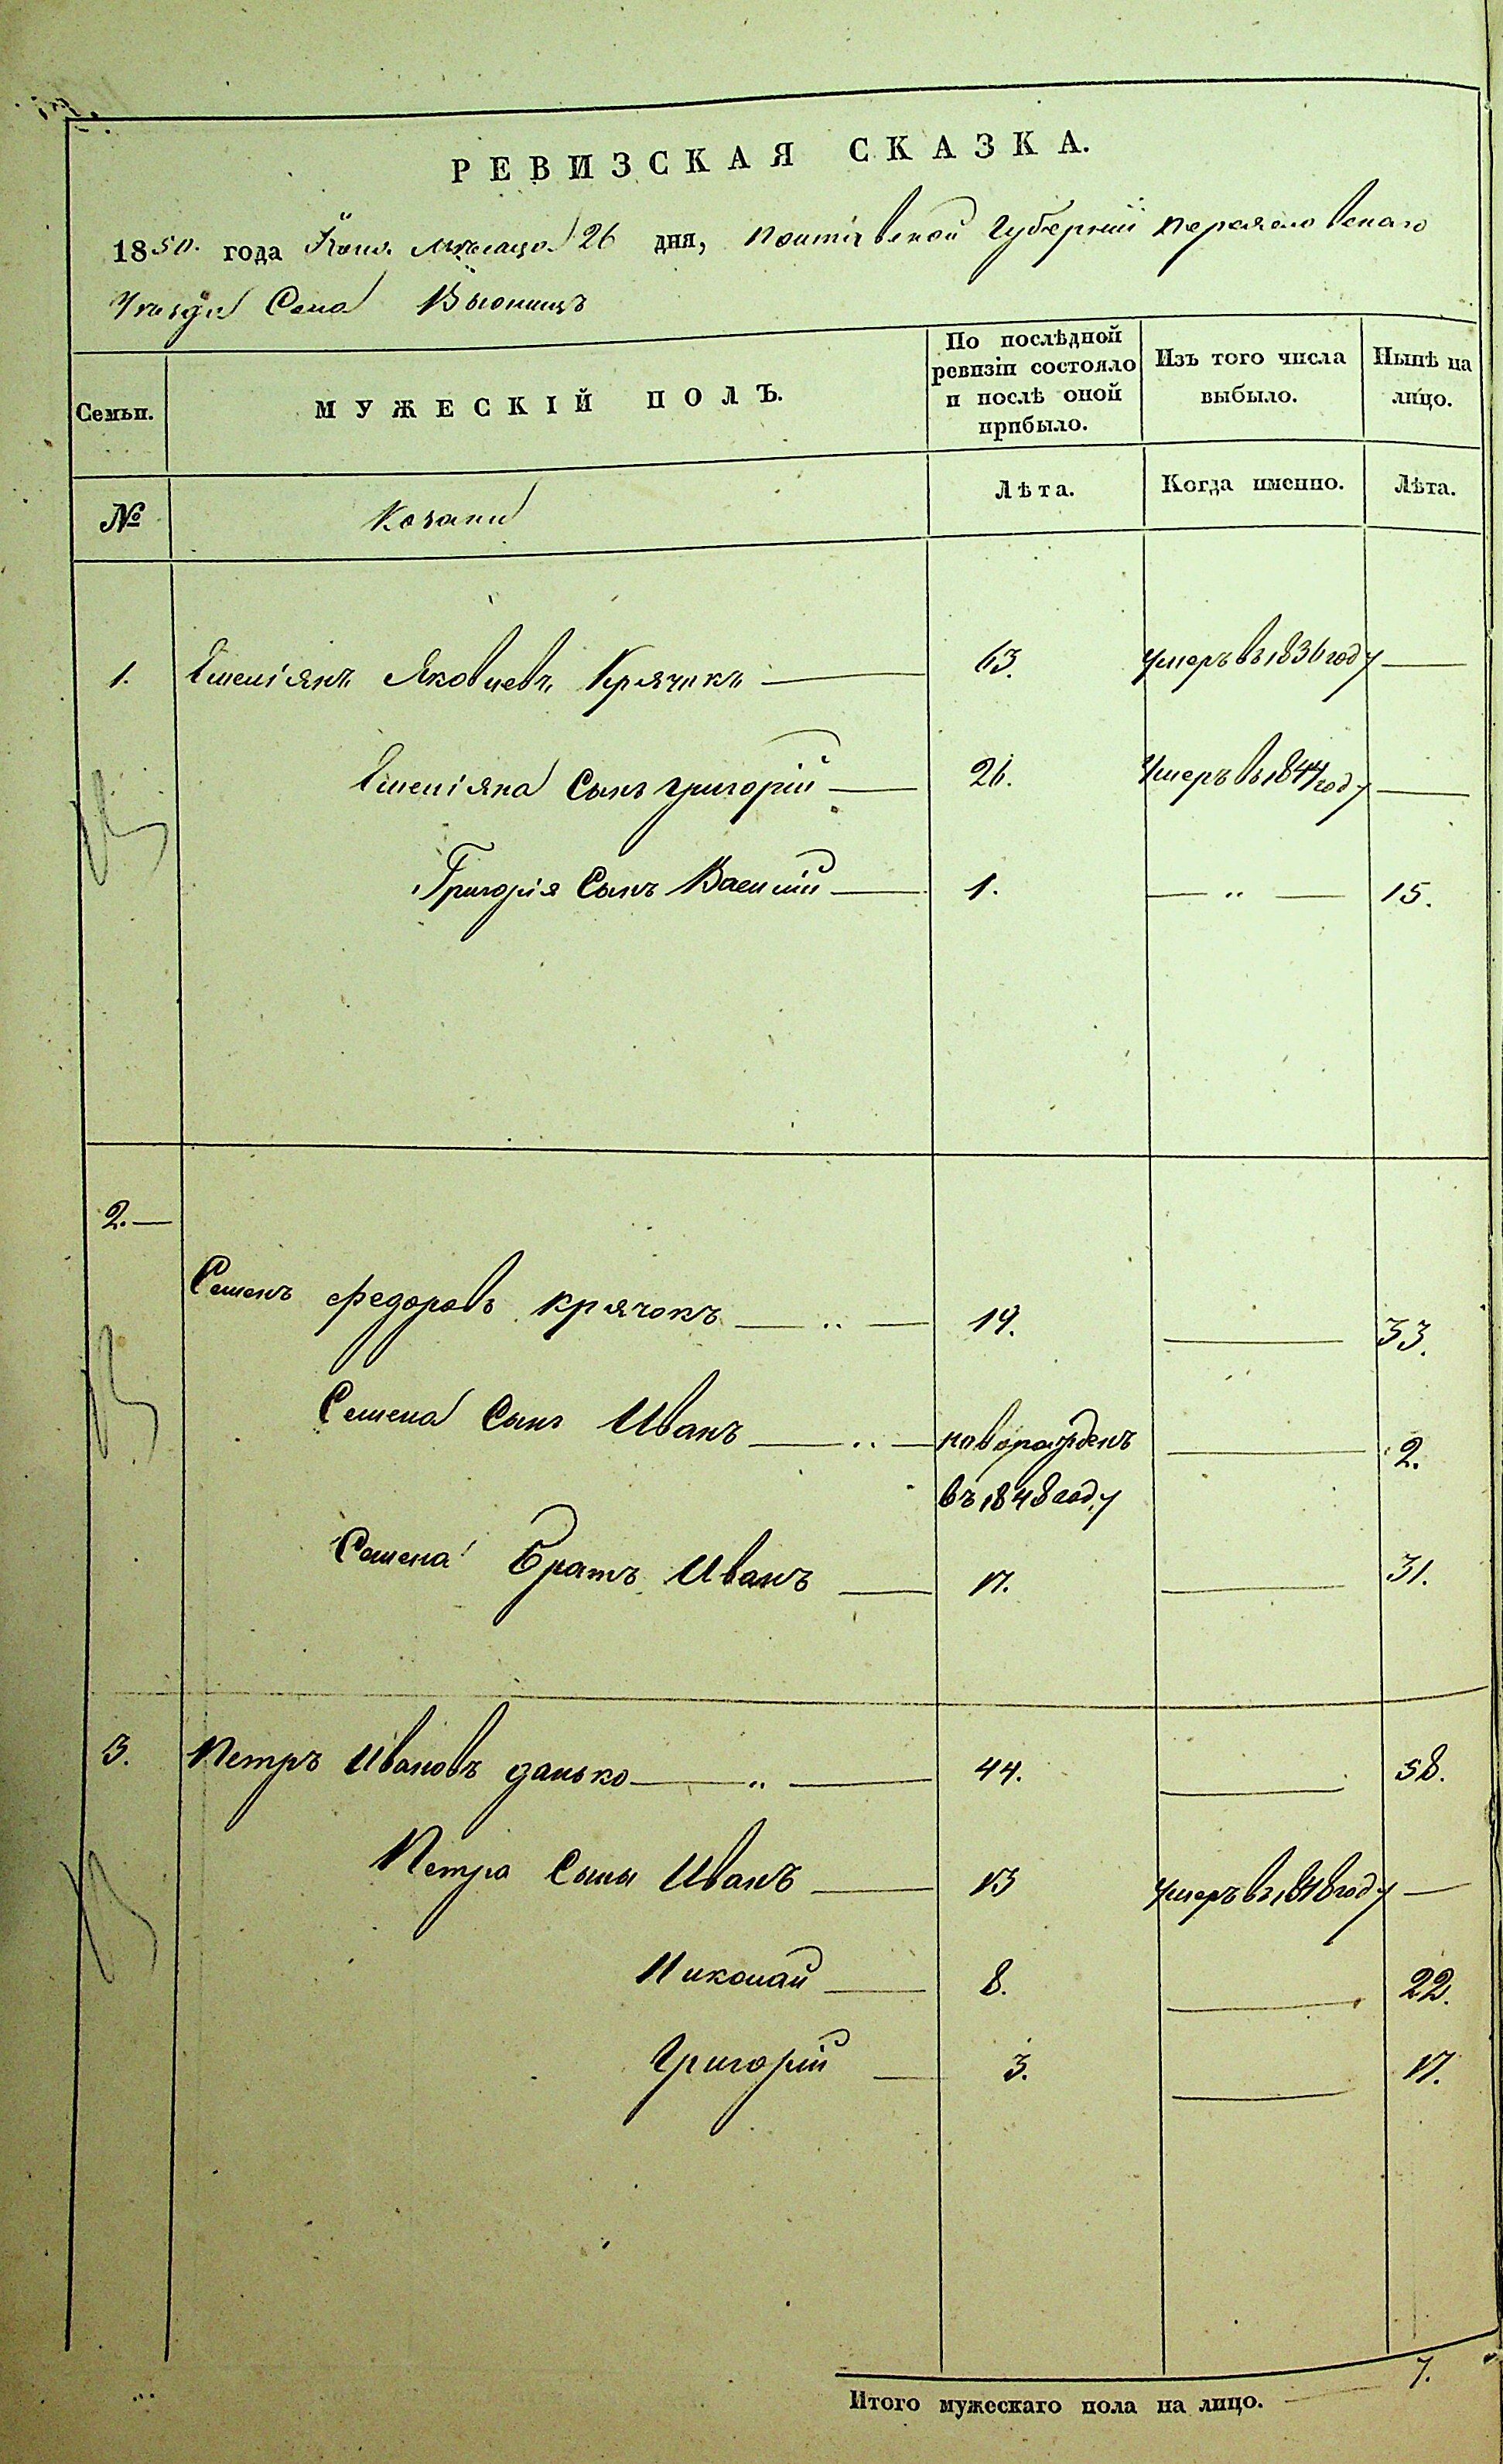 РЕВИЗСКАЯ СКАЗКА.
1850. года Іюня мѣсяца 26 дня, Полтавской Губерніи Переяславскаго
Уѣзда Села Вьюнищъ
Семьи. МУЖЕСКІЙ ПОЛЪ. По послѣдной ревизіи состояло и послѣ оной прибыло. Изъ того числа выбыло. Нынѣ на лицо.
№ Козаки Лѣта. Когда именно. Лѣта.
1. Емеліянъ Яковлевъ Крячикъ — 63. Умеръ въ 1836 году —
Емеліяна Сынъ Григорій — 26. Умеръ въ 1844 году —
Григорія Сынъ Василій — 1. — „ — 15.
2. —
Семенъ Федоровъ Крячокъ — „ — 19. — 33.
Семена Сынъ Иванъ — „ — новорожденъ — 2.
въ 1848 году
Семена Братъ Иванъ — 17. — 31.
3. Петръ Ивановъ Данько — „ — 44. — 58.
Петра Сыны Иванъ — 13 Умеръ въ 1848 году —
Николай — 8. — 22.
Григорій — 3. — 17.
Итого мужескаго пола на лицо. — 7.